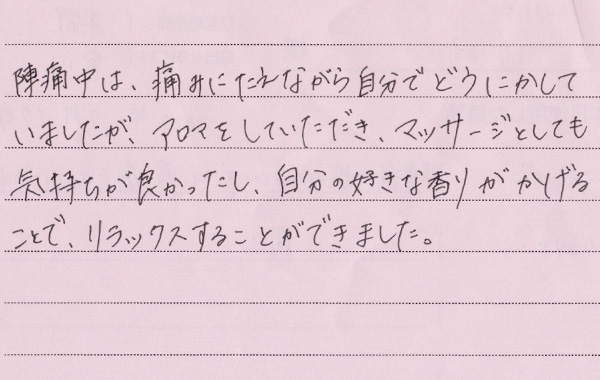 陣痛中は、痛みにたえながら自分でどうにかして
いましたが、アロマをしていただき、マッサージとしても
気持ちが良かったし、自分の好きな香りがかげる
ことで、リラックスすることができました。